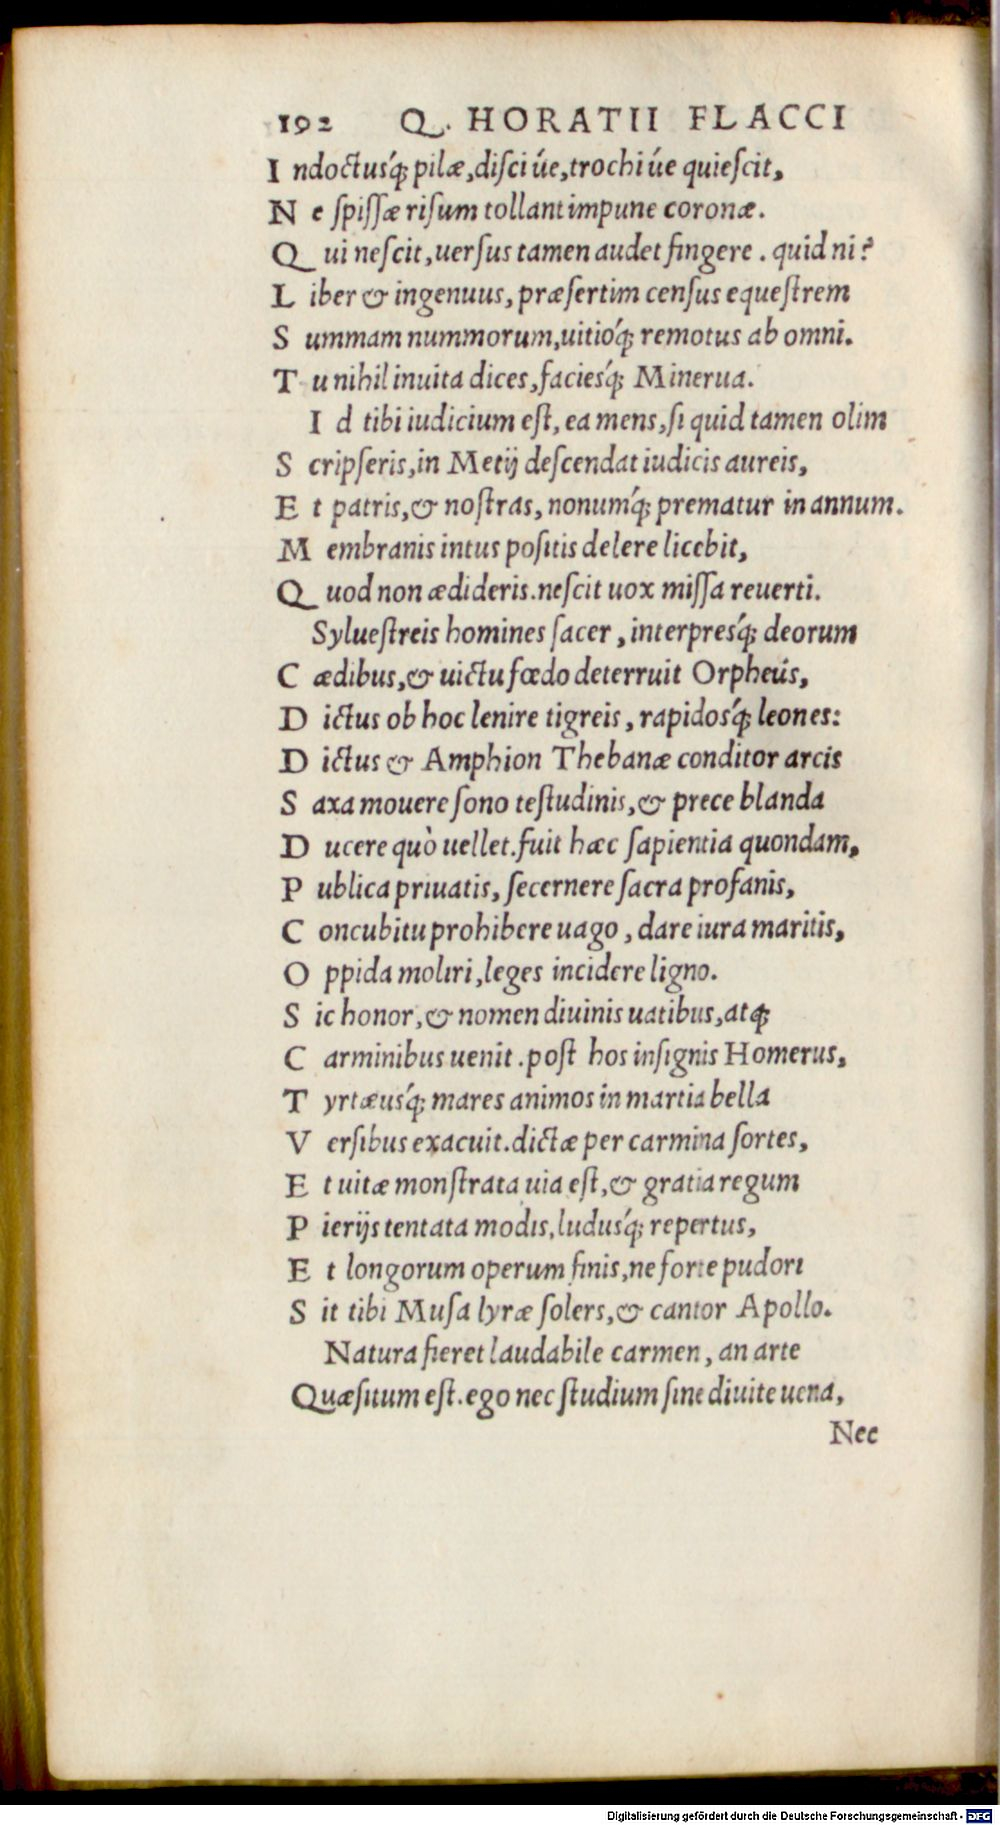 192 Q. HORATII FLACCI
I ndoctusq́; pilæ, diſci úe, trochi úe quieſcit,
N e ſpiſſæ riſum tollant impune coronæ.
Q ui neſcit, uerſus tamen audet fingere. quid ni?
L iber & ingenuus, præſertim cenſus equeſtrem
S ummam nummorum, uitioq́; remotus ab omni.
T u nihil inuita dices, faciesq́; Minerua.
I d tibi iudicium eſt, ea mens, ſi quid tamen olim
S cripſeris, in Metij deſcendat iudicis aureis,
E t patris, & noſtras, nonumq́; prematur in annum.
M embranis intus poſitis delere licebit,
Q uod non ædideris. neſcit uox miſſa reuerti.
Sylueſtreis homines ſacer, interpresq́; deorum
C ædibus, & uictu fœdo deterruit Orpheús,
D ictus ob hoc lenire tigreis, rapidosq́; leones:
D ictus & Amphion Thebanæ conditor arcis
S axa mouere ſono teſtudinis, & prece blanda
D ucere quò uellet. fuit hæc ſapientia quondam,
P ublica priuatis, ſecernere ſacra profanis,
C oncubitu prohibere uago, dare iura maritis,
O ppida moliri, leges incidere ligno.
S ic honor, & nomen diuinis uatibus, atq;
C arminibus uenit. poſt hos inſignis Homerus,
T yrtæusq́; mares animos in martia bella
V erſibus exacuit. dictæ per carmina ſortes,
E t uitæ monſtrata uia eſt, & gratia regum
P ierijs tentata modis, ludusq́; repertus,
E t longorum operum finis, ne forte pudori
S it tibi Muſa lyræ ſolers, & cantor Apollo.
Natura fieret laudabile carmen, an arte
Quæſitum eſt. ego nec ſtudium ſine diuite uena,
Nec
Digitalisierung gefördert durch die Deutsche Forschungsgemeinschaft - DFG